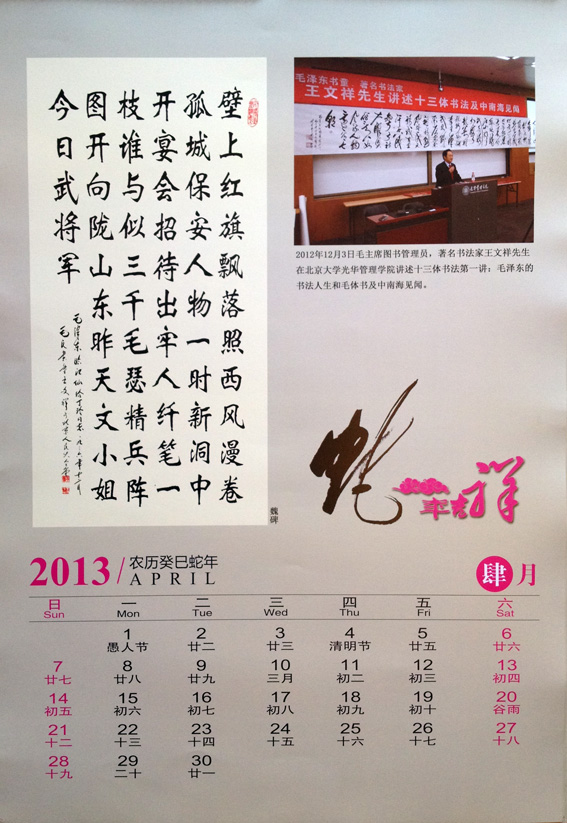 壁上红旗飘落照西风漫卷
孤城保安人物一时新洞中
开宴会招待出牢人纤笔一
枝谁与似三千毛瑟精兵阵
图开向陇山东昨天文小姐
今日武将军
魏碑
毛泽东书童 著名书法家
王文祥先生讲述十三体书法及中南海见闻
2012年12月3日毛主席图书管理员，著名书法家王文祥先生
在北京大学光华管理学院讲述十三体书法第一讲：毛泽东的
书法人生和毛体书及中南海见闻。
蛇
年吉祥
2013/ 农历癸巳蛇年
APRIL
肆月
日 一 二 三 四 五 六
Sun Mon Tue Wed Thu Fri Sat
1 2 3 4 5 6
愚人节 廿二 廿三 清明节 廿五 廿六
7 8 9 10 11 12 13
廿七 廿八 廿九 三月 初二 初三 初四
14 15 16 17 18 19 20
初五 初六 初七 初八 初九 初十 谷雨
21 22 23 24 25 26 27
十二 十三 十四 十五 十六 十七 十八
28 29 30
十九 二十 廿一